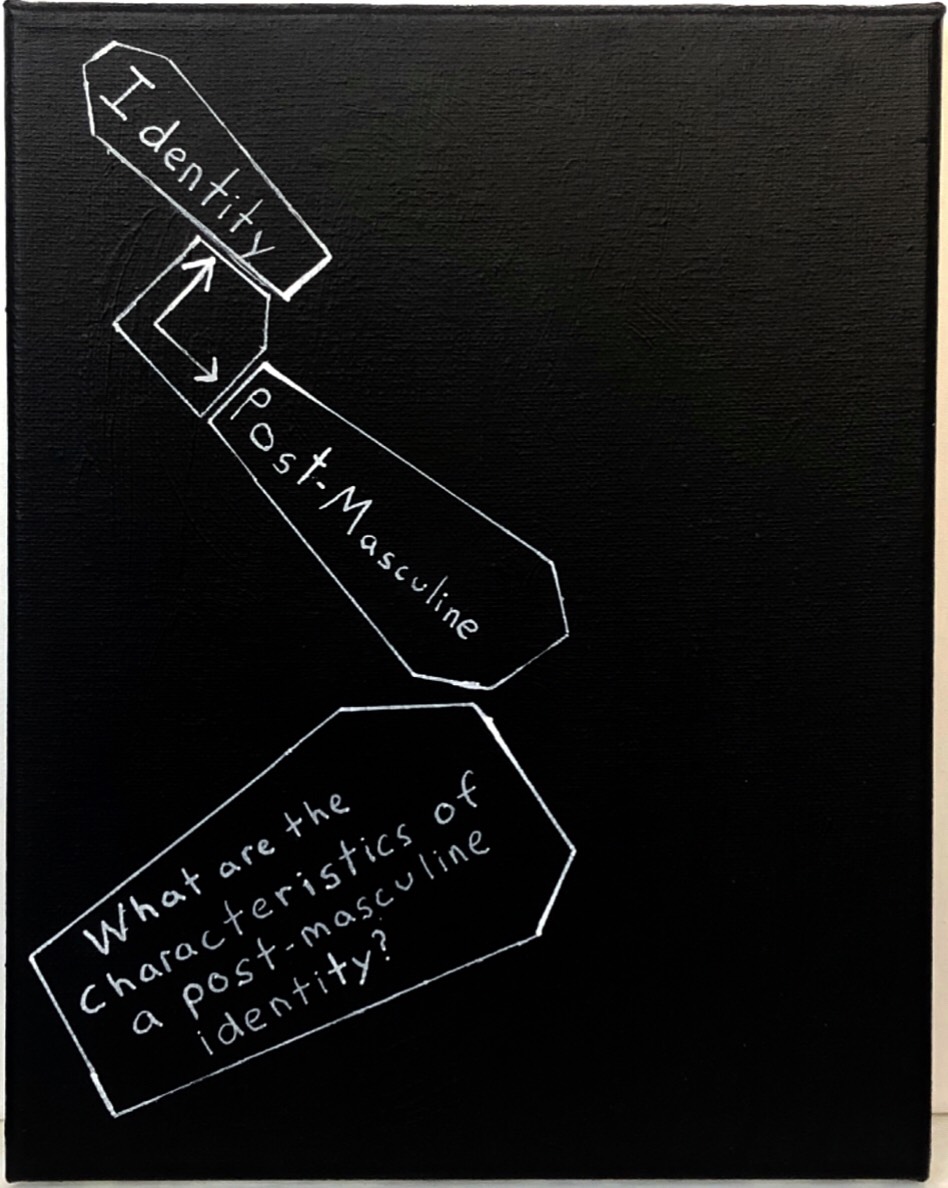 Identity
Post-Masculine
What are the
characteristics of
a post-masculine
identity?